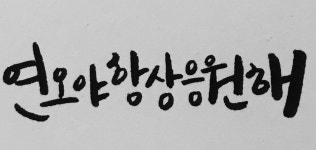 연오야항상응원해